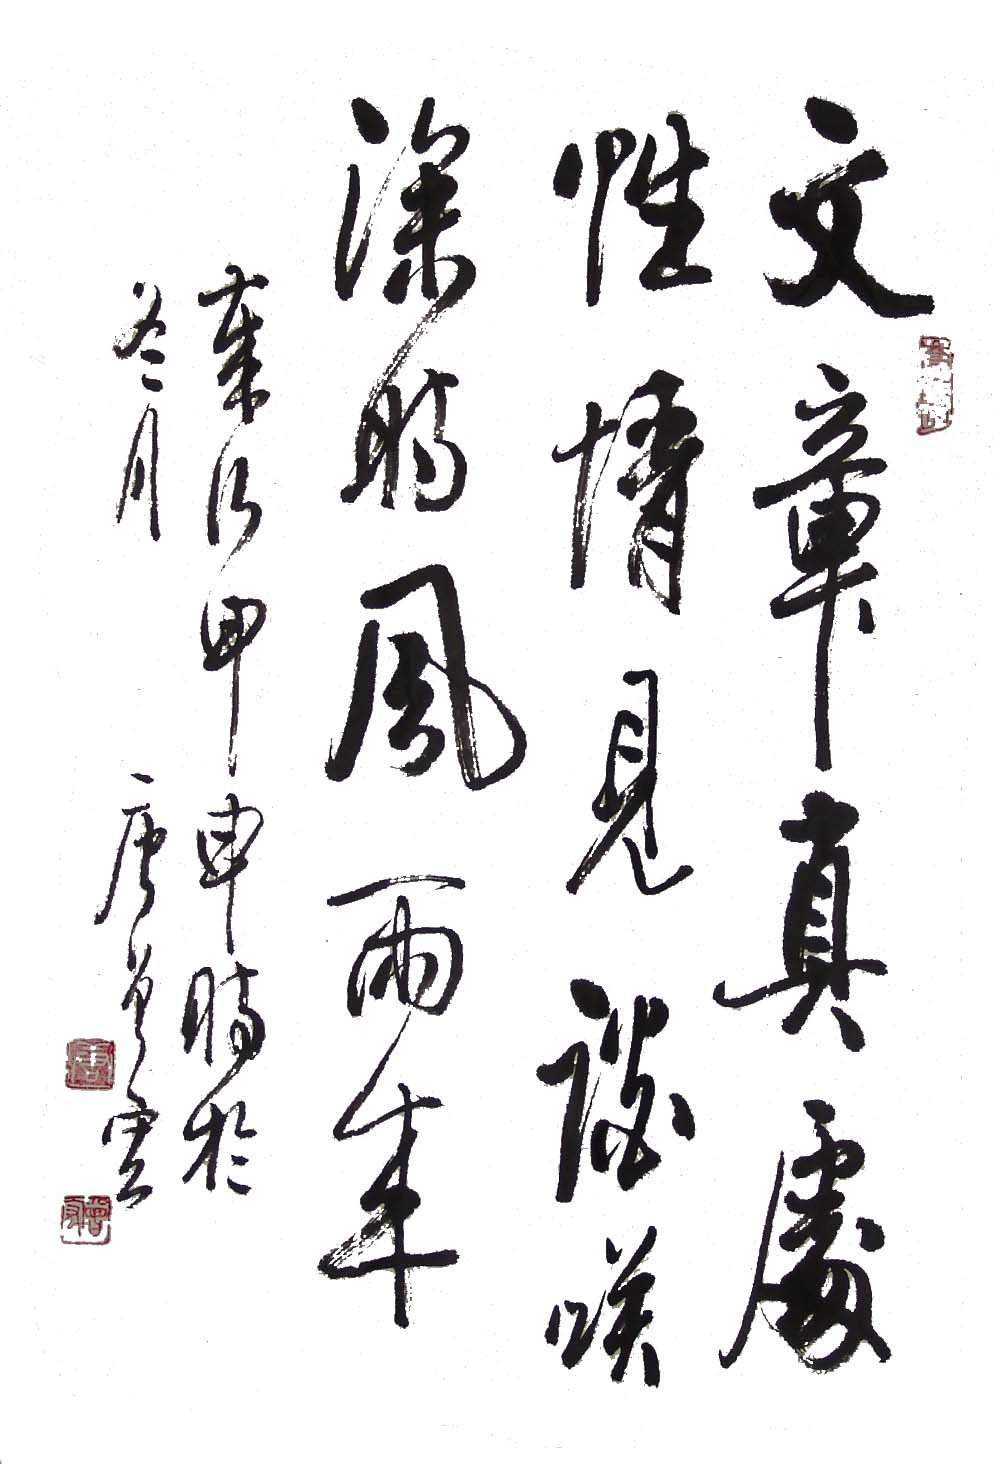 文章真處
性情見談咲
深時風雨来
歲次甲申時於
冬月 唐曾雲